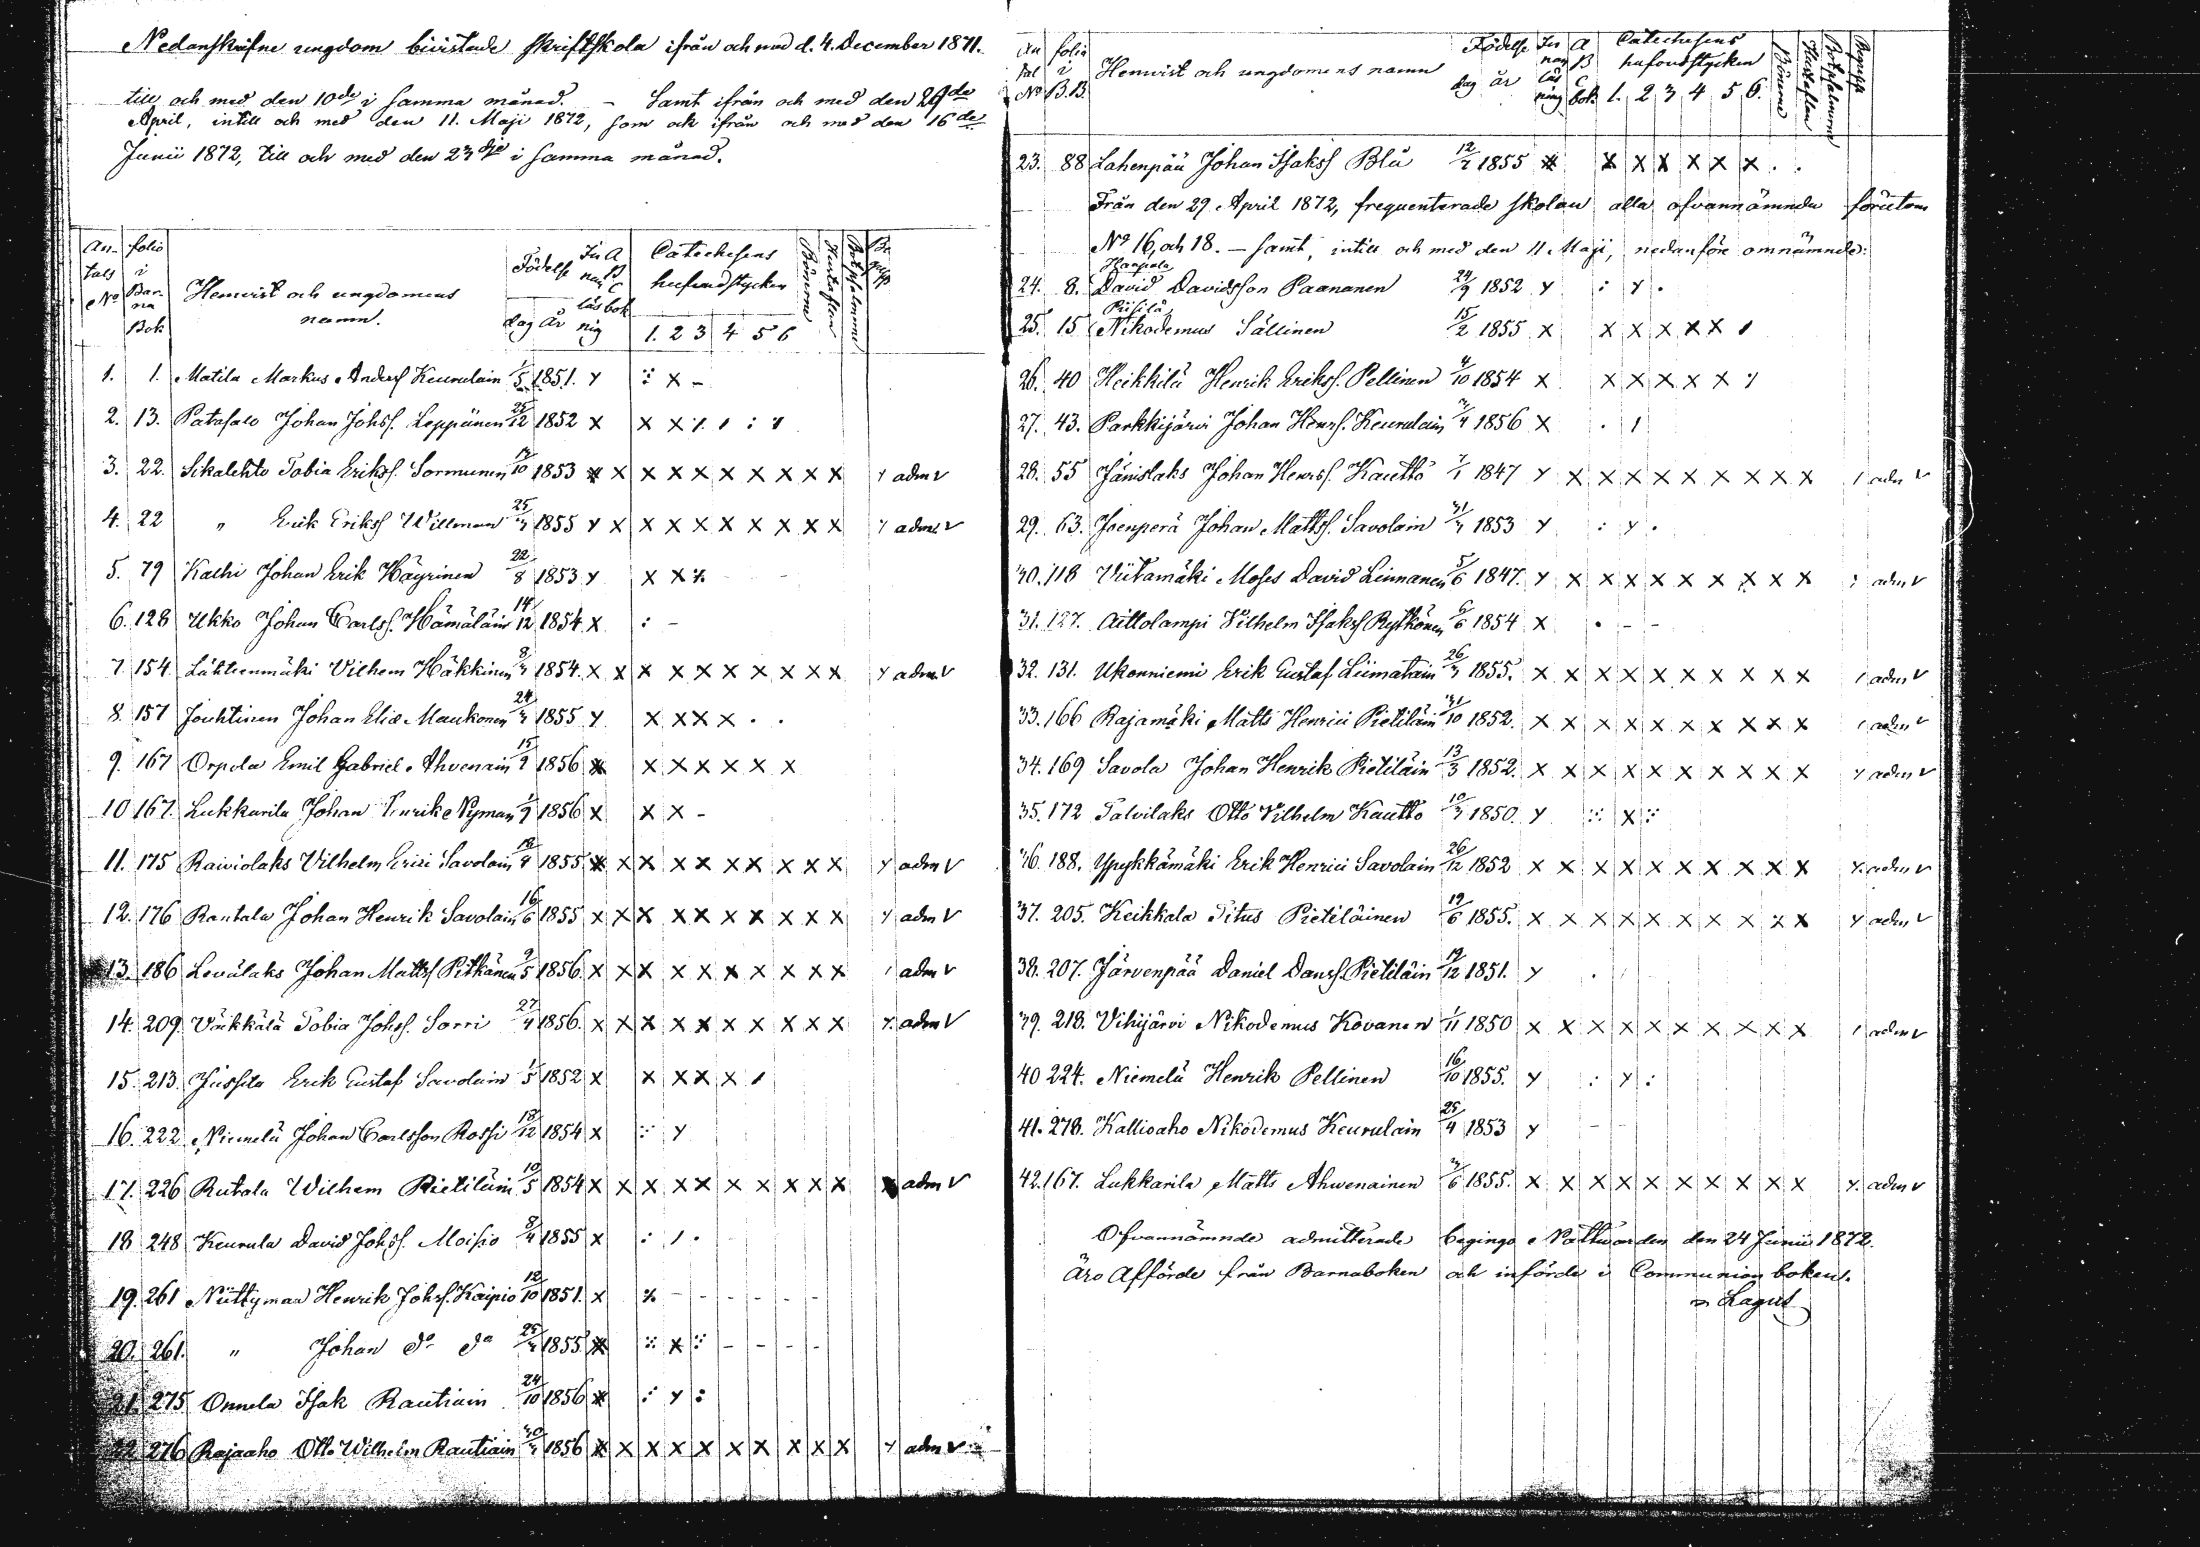 Nedanskrifne ungdom bivistade skriftskola ifrån och med d. 4. December 1871.
till och med den 10de i samma månad. – Samt ifrån och med den 29de
April, intill och med den 11. Maji 1872, som ock ifrån och med den 16de
Junii 1872, till och med den 23dje i samma månad.
An- tals No folio i Barna Bok Hemvist och ungdomens namn. Födelse dag år In nan läs ning A B C bok Catechesens hufvudstycken 1. 2 3 4 5 6 Bönerne Hustaflan Botpsalmerne Begrepp
1. 1. Matila Markus Anderss Keurulain /5 1851. y : x –
2. 13. Patasalo Johan Johss. Leppänen 25/12 1852 x x x
3. 22. Sikalehto Tobia Erikss. Sormunen /10 1853 x x x x x x x x x x adm v
4. 22 " Erik Erikss Willman 25/ 1855 y x x x x x x x x x y adm v
5. 79 Kalhi Johan Erik Häyrinen 22/8 1853 y x x
6. 128 Ukko Johan Carlss. Hämäläin 14/12 1854 x : –
7. 154. Lähteenmäki Vilhem Häkkinen 8/ 1854. x x x x x x x x x x y adm v
8. 157 Jouhtinen Johan Eliæ Maukonen 24/ 1855 y x x x x . .
9. 167 Orpola Emil Gabriel Ahvenain 15/ 1856 x x x x x x x
10 167. Lukkarila Johan Nyman /9 1856 x x x –
11. 175 Raiviolaks Vilhelm Erici Savolain 1855 x x x x x x x x x x y adm v
12. 176 Rantala Johan Henrik Savolain 16/6 1855 x x x x x x x x x x y adm v
13. 186 Levälaks Johan Mattss Pitkänen /5 1856. x x x x x x x x x x adm v
14. 209. Väkkälä Tobia Johss. Sorri 27/4 1856. x x x x x x x x x x y. adm v
15. 213. Jussila Erik Gustaf Savolain /5 1852 x x x x x
16. 222 Niemelä Johan Carlsson Rossi /12 1854 x y
17. 226 Rutala Wilhem Pietiläin. 19/5 1854 x x x x x x x x x x adm v
18 248 Keurula David Johss. Moisio 8/4 1855 x : .
19. 261 Niittymaa Henrik Johss. Kaipio 12/10 1851. x – – – – – –
20. 261. " Johan do do 25/ 1855 x x – – – –
21. 275 Onnela Isak Rautiain 24/10 1856 x y :
22 276 Rajaaho Otto Wilhelm Rautiain 1856 x x x x x x x x x x y adm v
An tal No folio i B.B. Hemvist och ungdomens namn Födelse dag år In nan läs ning A B C bok Catechesens hufvudstycken 1. 2 3 4 5 6. Bönerne Hustaflan Botpsalmerne Begrepp
23. 88 Lahenpää Johan Isakss Blå 12/ 1855 x x x x x x x . .
Från den 29 April 1872, frequenterade skolan alla ofvannämnda förutom
No 16, och 18. – samt, intill och med den 11 Maji, nedanföre omnämnde:
Haapala
24. 8. David Davidsson Paananen 24/9 1852 y : y .
Piisilä,
25. 15 Nikodemus Sällinen 15/2 1855 x x x x x x
26. 40 Heikkilä Henrik Erikss. Pellinen 4/10 1854 x x x x x x
27. 43. Parkkijärvi Johan Henrss. Keurulain /4 1856 x .
28. 55 Jänislaks Johan Henrss. Kautto 1847 y x x x x x x x x x adm v
29. 63. Joenperä Johan Mattss. Savolain 1853 y : y .
30. 118 Viitamäki Moses David Linnanen 5/6 1847. y x x x x x x x x x adm v
31. 127. Aittolampi Vilhelm Isakss Rytkönen 6/6 1854 x . – –
32. 131. Ukonniemi Erik Gustaf Liimatain 26/ 1855. x x x x x x x x x x adm v
33. 166 Rajamäki Matts Henrici Pietiläin /10 1852. x x x x x x x x x x adm v
34. 169 Savola Johan Henrik Pietiläin 13/3 1852. x x x x x x x x x x y adm v
35. 172 Talvilaks Otto Vilhelm Kautto 10/ 1850. y x
36. 188. Ypykkämäki Erik Henrici Savolain 26/12 1852 x x x x x x x x x x y. adm v
37. 205. Keikkala Titus Pietiläinen 19/6 1855. x x x x x x x x x x y adm v
38. 207. Järvenpää Daniel Danss. Pietiläin /12 1851. y .
39. 218. Vihijärvi Nikodemus Kovanen 1/11 1850 x x x x x x x x x x adm v
40 224. Niemelä Henrik Pellinen 16/10 1855. y : y :
41. 278. Kallioaho Nikodemus Keurulain 25/4 1853 y – –
42. 167. Lukkarila Matts Ahwenainen /6 1855. x x x x x x x x x x y. adm v
Ofvannämnde admitterade begingo Nattvarden den 24 Junii 1872.
Äro Afförde från Barnaboken och införde i Communion boken.
Lagus